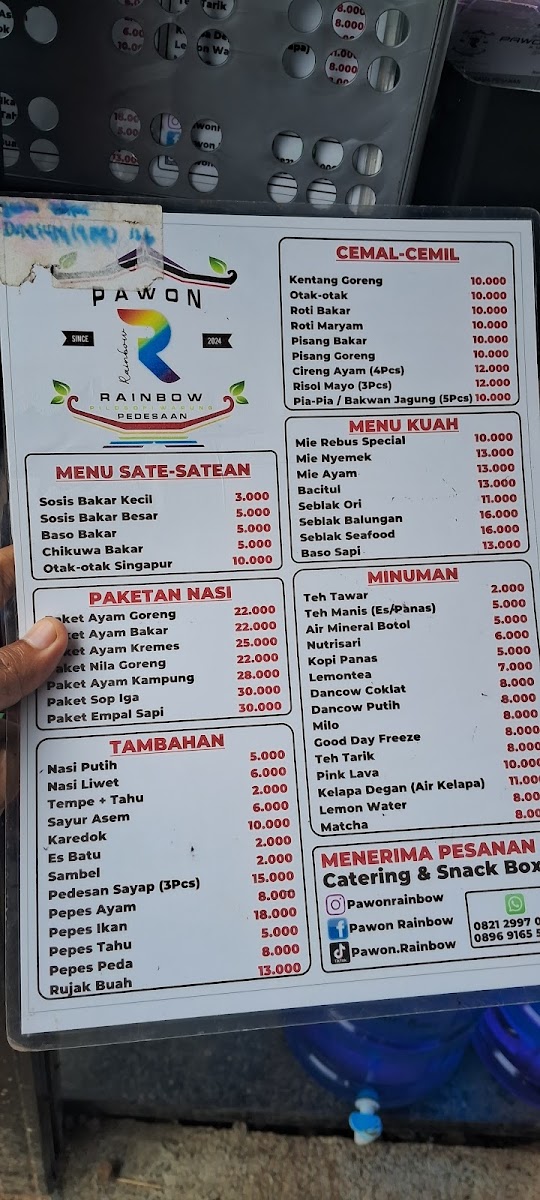 PAWON
SINCE
2024
Rainbow
RAINBOW
FILOSOFI WARUNG
PEDESAAN
MENU SATE-SATEAN
Sosis Bakar Kecil 3.000
Sosis Bakar Besar 5.000
Baso Bakar 5.000
Chikuwa Bakar 5.000
Otak-otak Singapur 10.000
PAKETAN NASI
ket Ayam Goreng 22.000
ket Ayam Bakar 22.000
ket Ayam Kremes 25.000
ket Nila Goreng 22.000
Paket Ayam Kampung 28.000
Paket Sop Iga 30.000
Paket Empal Sapi 30.000
TAMBAHAN
Nasi Putih 5.000
Nasi Liwet 6.000
Tempe + Tahu 2.000
Sayur Asem 6.000
Karedok 10.000
Es Batu 2.000
Sambel 2.000
Pedesan Sayap (3Pcs) 15.000
Pepes Ayam 8.000
Pepes Ikan 18.000
Pepes Tahu 5.000
Pepes Peda 8.000
Rujak Buah 13.000
CEMAL-CEMIL
Kentang Goreng 10.000
Otak-otak 10.000
Roti Bakar 10.000
Roti Maryam 10.000
Pisang Bakar 10.000
Pisang Goreng 10.000
Cireng Ayam (4Pcs) 12.000
Risol Mayo (3Pcs) 12.000
Pia-Pia / Bakwan Jagung (5Pcs) 10.000
MENU KUAH
Mie Rebus Special 10.000
Mie Nyemek 13.000
Mie Ayam 13.000
Bacitul 13.000
Seblak Ori 11.000
Seblak Balungan 16.000
Seblak Seafood 16.000
Baso Sapi 13.000
MINUMAN
Teh Tawar 2.000
Teh Manis (Es/Panas) 5.000
Air Mineral Botol 5.000
Nutrisari 6.000
Kopi Panas 5.000
Lemontea 7.000
Dancow Coklat 8.000
Dancow Putih 8.000
Milo 8.000
Good Day Freeze 8.000
Teh Tarik 8.000
Pink Lava 10.000
Kelapa Degan (Air Kelapa) 11.00
Lemon Water 8.00
Matcha 8.00
MENERIMA PESANAN
Catering & Snack Box
Pawonrainbow
Pawon Rainbow
Pawon.Rainbow
0821 2997 0
0896 9165 5